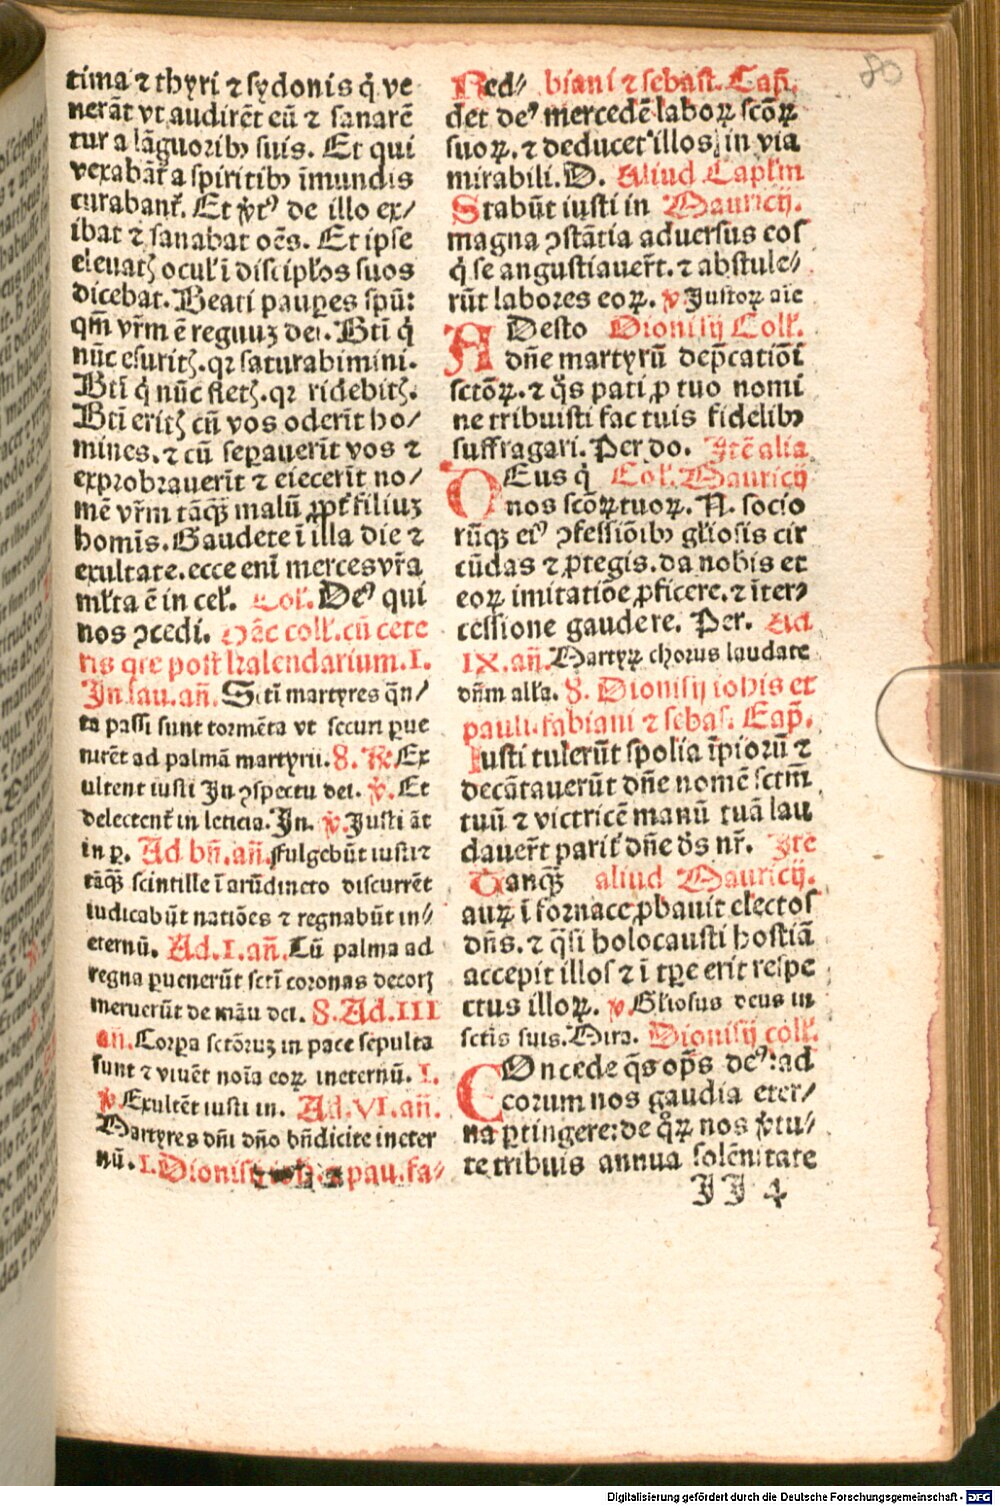 tima ⁊ thyri ⁊ sydonis q̇ ve
nerāt vt audirēt eū ⁊ sanarē
tur a lāguoribꝫ suis. Et qui
vexabāt̄ a spiritibꝫ īmundis
curabant̄. Et v̇tꝰ de illo ex/
ibat ⁊ sanabat oēs. Et ipse
eleuatꝫ ocul' ī discipl'os suos
dicebat. Beati paup̲es spū:
qm̄ vr̄m ē regnuꝫ dei. Btī q̇
nūc esuritꝫ. qꝛ saturabimini.
Btī q̇ nūc fletꝫ. qꝛ ridebitꝫ.
Btī eritꝫ cū vos oderīt ho/
mines. ⁊ cū sepauerīt vos ⁊
exprobrauerīt ⁊ eiecerīt no/
mē vr̄m tāqꝫ̄ malū ꝓpt̄ filiuꝫ
homīs. Gaudete ī illa die ⁊
exultate. ecce enī merces vr̄a
ml'ta ē in cel'. Col'. Deꝰ qui
nos ꝯcedi. Hāc coll'. cū cete
ris qre post kalendarium. I.
In lau. an̄. Sctī martyres q̄n/
ta passi sunt tormēta vt securi ꝑue
nirēt ad palmā martyrii. 8. ℟ Ex
ultent iusti In ꝯspectu dei. ℣. Et
delectent̄ in leticia. In. ℣. Iusti āt
in ꝑ. Ad bn̄. an̄. Fulgebūt iusti ⁊
tāqꝫ̄ scintille ī arūdineto discurrēt
iudicabūt natiōes ⁊ regnabūt in//
eternū. Ad. I. an̄. Cū palma ad
regna ꝑuenerūt sctī coronas decorꝫ
meruerūt de māu dei. 8. Ad. III
an̄. Corꝑa sctōruꝫ in pace sepulta
sunt ⁊ viuēt noīa eoꝝ ineternū. I.
℣ Exultēt iusti in. Ad. VI. an̄.
Martyres dn̄i dn̄o bn̄dicite ineter
nū. I. Dionisij pau. fa-
Red// biani ⁊ sebast. Cap̄.
det deꝰ mercedē laboꝝ scōꝝ
suoꝝ. ⁊ deducet illos in via
mirabili. D. Aliud Capl'm
Stabūt iusti in Mauricij.
magna ꝯstātia aduersus eos
q̇ se angustiauer̄t. ⁊ abstule//
rūt labores eoꝝ. ℣ Iustoꝝ aīe
ADesto Dionisij Coll'.
dn̄e martyrū dep̄catiōī
sctōꝝ. ⁊ q̄s pati ꝓ tuo nomi
ne tribuisti fac tuis fidelibꝫ
suffragari. Per do. Itē alia
DEus q̇ Col'. Mauricij
nos scōꝝ tuoꝝ. N. socio
rūqꝫ eiꝰ ꝯfessiōibꝫ gl'iosis cir
cūdas ⁊ ꝓtegis. da nobis et
eoꝝ imitatiōe ꝓficere. ⁊ īter⸗
cessione gaudere. Per. Ad
IX. an̄. Martyꝝ chorus laudate
dn̄m all'a. 8. Dionisij iohis et
pauli. fabiani ⁊ sebas. Cap̄.
Iusti tulerūt spolia īpiorū ⁊
decātauerūt dn̄e nomē sctm̄
tuū ⁊ victricē manū tuā lau
dauer̄t parit̄ dn̄e d̄s nr̄. Ite
Tanqꝫ̄ aliud Mauricij.
auꝝ ī fornace ꝓbauit electos
dn̄s. ⁊ q̄si holocausti hostiā
accepit illos ⁊ ī tꝑe erit respe
ctus illoꝝ. ℣ Gl'iosus deus in
sctis suis. Mira. Dionisij coll'.
COncede q̄s op̄s deꝰ: ad
corum nos gaudia eter/
na ꝑtingere: de q̄ꝝ nos v̇tu//
te tribuis annua solēnitate
II 4
80
Digitalisierung gefördert durch die Deutsche Forschungsgemeinschaft - DFG